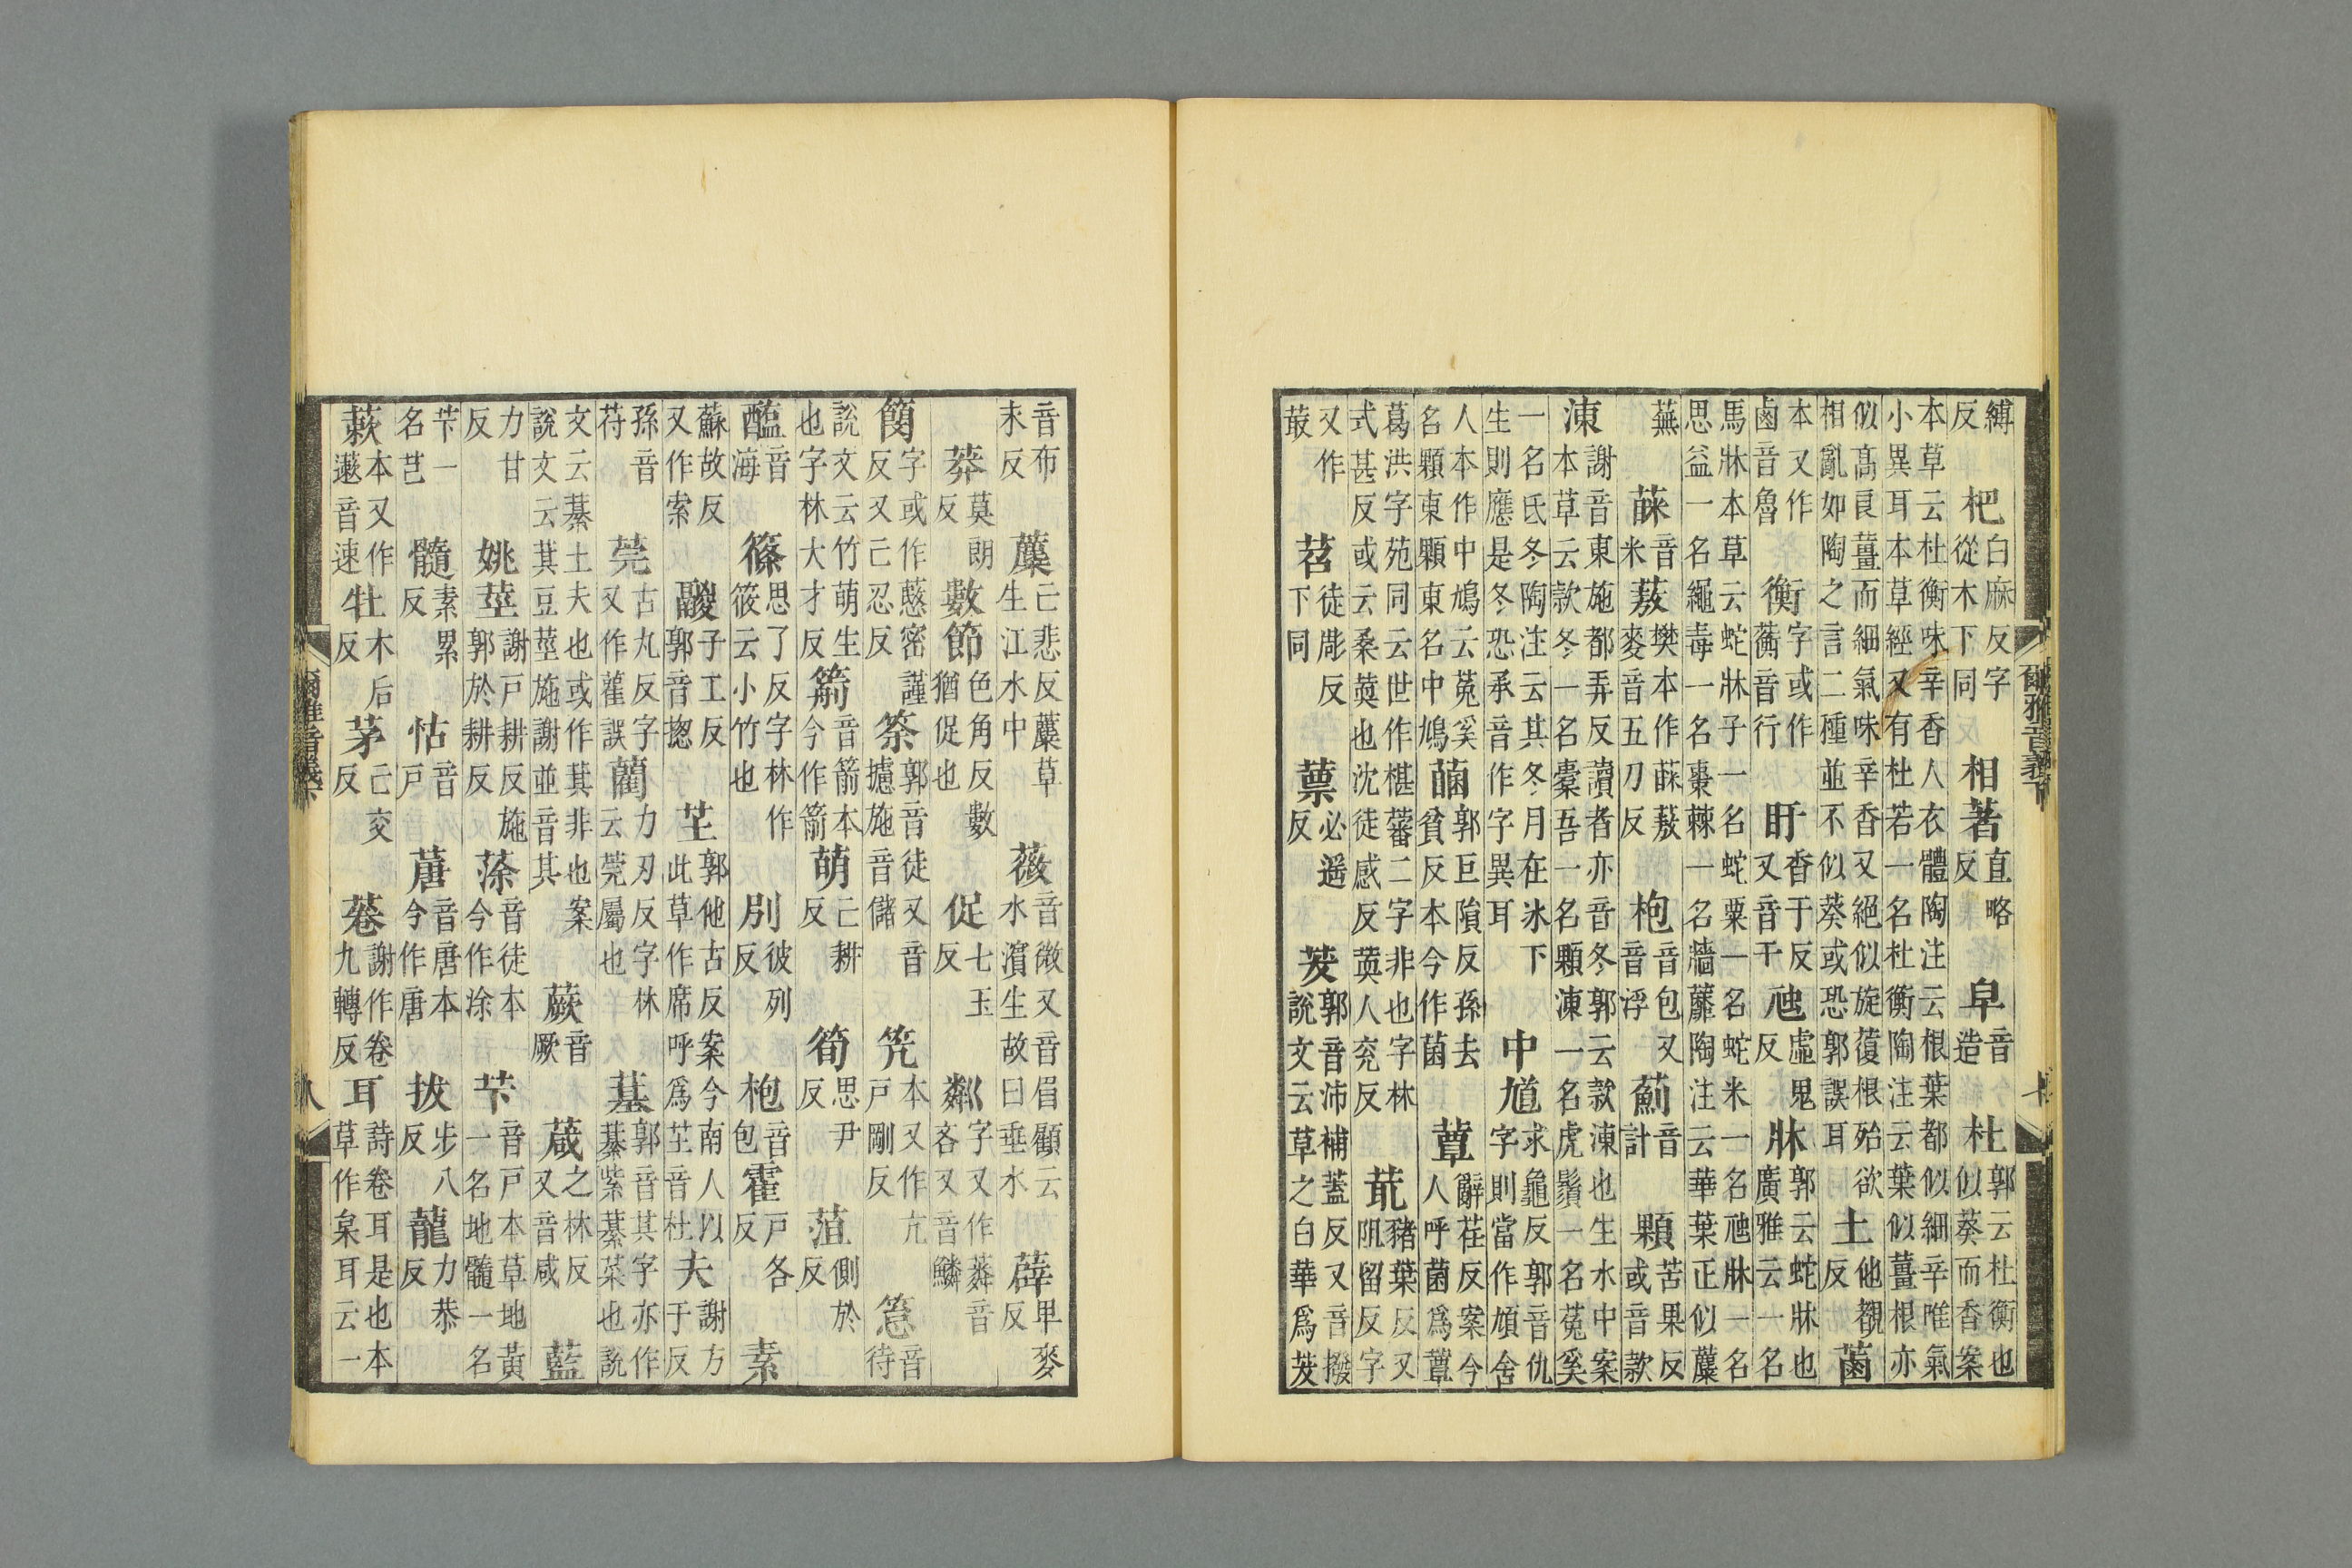 爾雅音義下
縛反杷白麻反字從木下同相著直略反皁音造杜郭云杜衡也似葵而香案
本草云杜衡味辛香人衣體陶注云根葉都似細辛唯氣小異耳本草經又有杜若一名杜衡陶注云葉似薑根亦
似高良薑而細氣味辛香又絕似旋葍根殆欲相亂如陶之言二種並不似葵或恐郭誤耳土他覩反菌
本又作鹵音魯衡字或作蘅音行盱香于反又音干虺虛鬼反牀郭云蛇牀也廣雅云一名
馬牀本草云蛇牀子一名蛇粟一名蛇米一名虺牀一名思益一名繩毒一名棗棘一名牆蘼陶注云華葉正似蘪
蕪蔝音米蔜樊本作蔝蔜麥音五刀反枹音包又音浮薊音計顆苦果反或音款
涷謝音東施都弄反讀者亦音冬郭云款涷也生水中案本草云款冬一名橐吾一名顆涷一名虎鬚一名菟奚
一名氐冬陶注云其冬月在冰下生則應是冬恐承音作字異耳中馗求龜反郭音仇字則當作頄舍
人本作中鳩云菟奚名顆東顆東名中鳩菌郭巨隕反孫去貧反本今作菌蕈辭荏反案今人呼菌爲蕈
葛洪字苑同云世作椹蕃二字非也字林式甚反或云桑䓴也沈徒感反䓴人兖反菆豬葉反又阻留反字
又作菆苕徒彫反下同蔈必遥反茇郭音沛補蓋反又音撥說文云草之白華爲茇
音布末反蘪亡悲反蘪草生江水中薇音微又音眉顧云水濱生故曰垂水薜卑麥反
莽莫朗反數節色角反數猶促也促七玉反粼字又作䔖音吝又音鱗
簢字或作慜密謹反又亡忍反筡郭音徒又音攄施音儲筅本又作亢戶剛反䈚音待
說文云竹萌生也字林大才反䉛音箭本今作箭萌亡耕反筍思尹反菹側於反
醢音海篠思了反字林作筱云小竹也別彼列反枹音包霍戶各反素
蘇故反又作索鬷子工反郭音揔芏郭他古反案今南人以此草作席呼爲芏音杜夫謝方于反
孫音苻莞古丸反字又作雚誤藺力刃反字林云莞屬也藄郭音其字亦作綦紫綦菜也說
文云綦土夫也或作萁非也案說文云萁豆莖施謝並音其蕨音厥葴之林反又音咸藍
力甘反姚莖謝戶耕反施郭於耕反蒤音徒本今作涂芐音戶本草地黃一名地髓一名
芐一名芑髓素累反怙音戶蓎音唐本今作唐拔步八反蘢力恭反
蔌本又作遬音速牡木后反茅亡交反菤謝作卷九轉反耳詩卷耳是也本草作枲耳云一
爾雅音義下 八